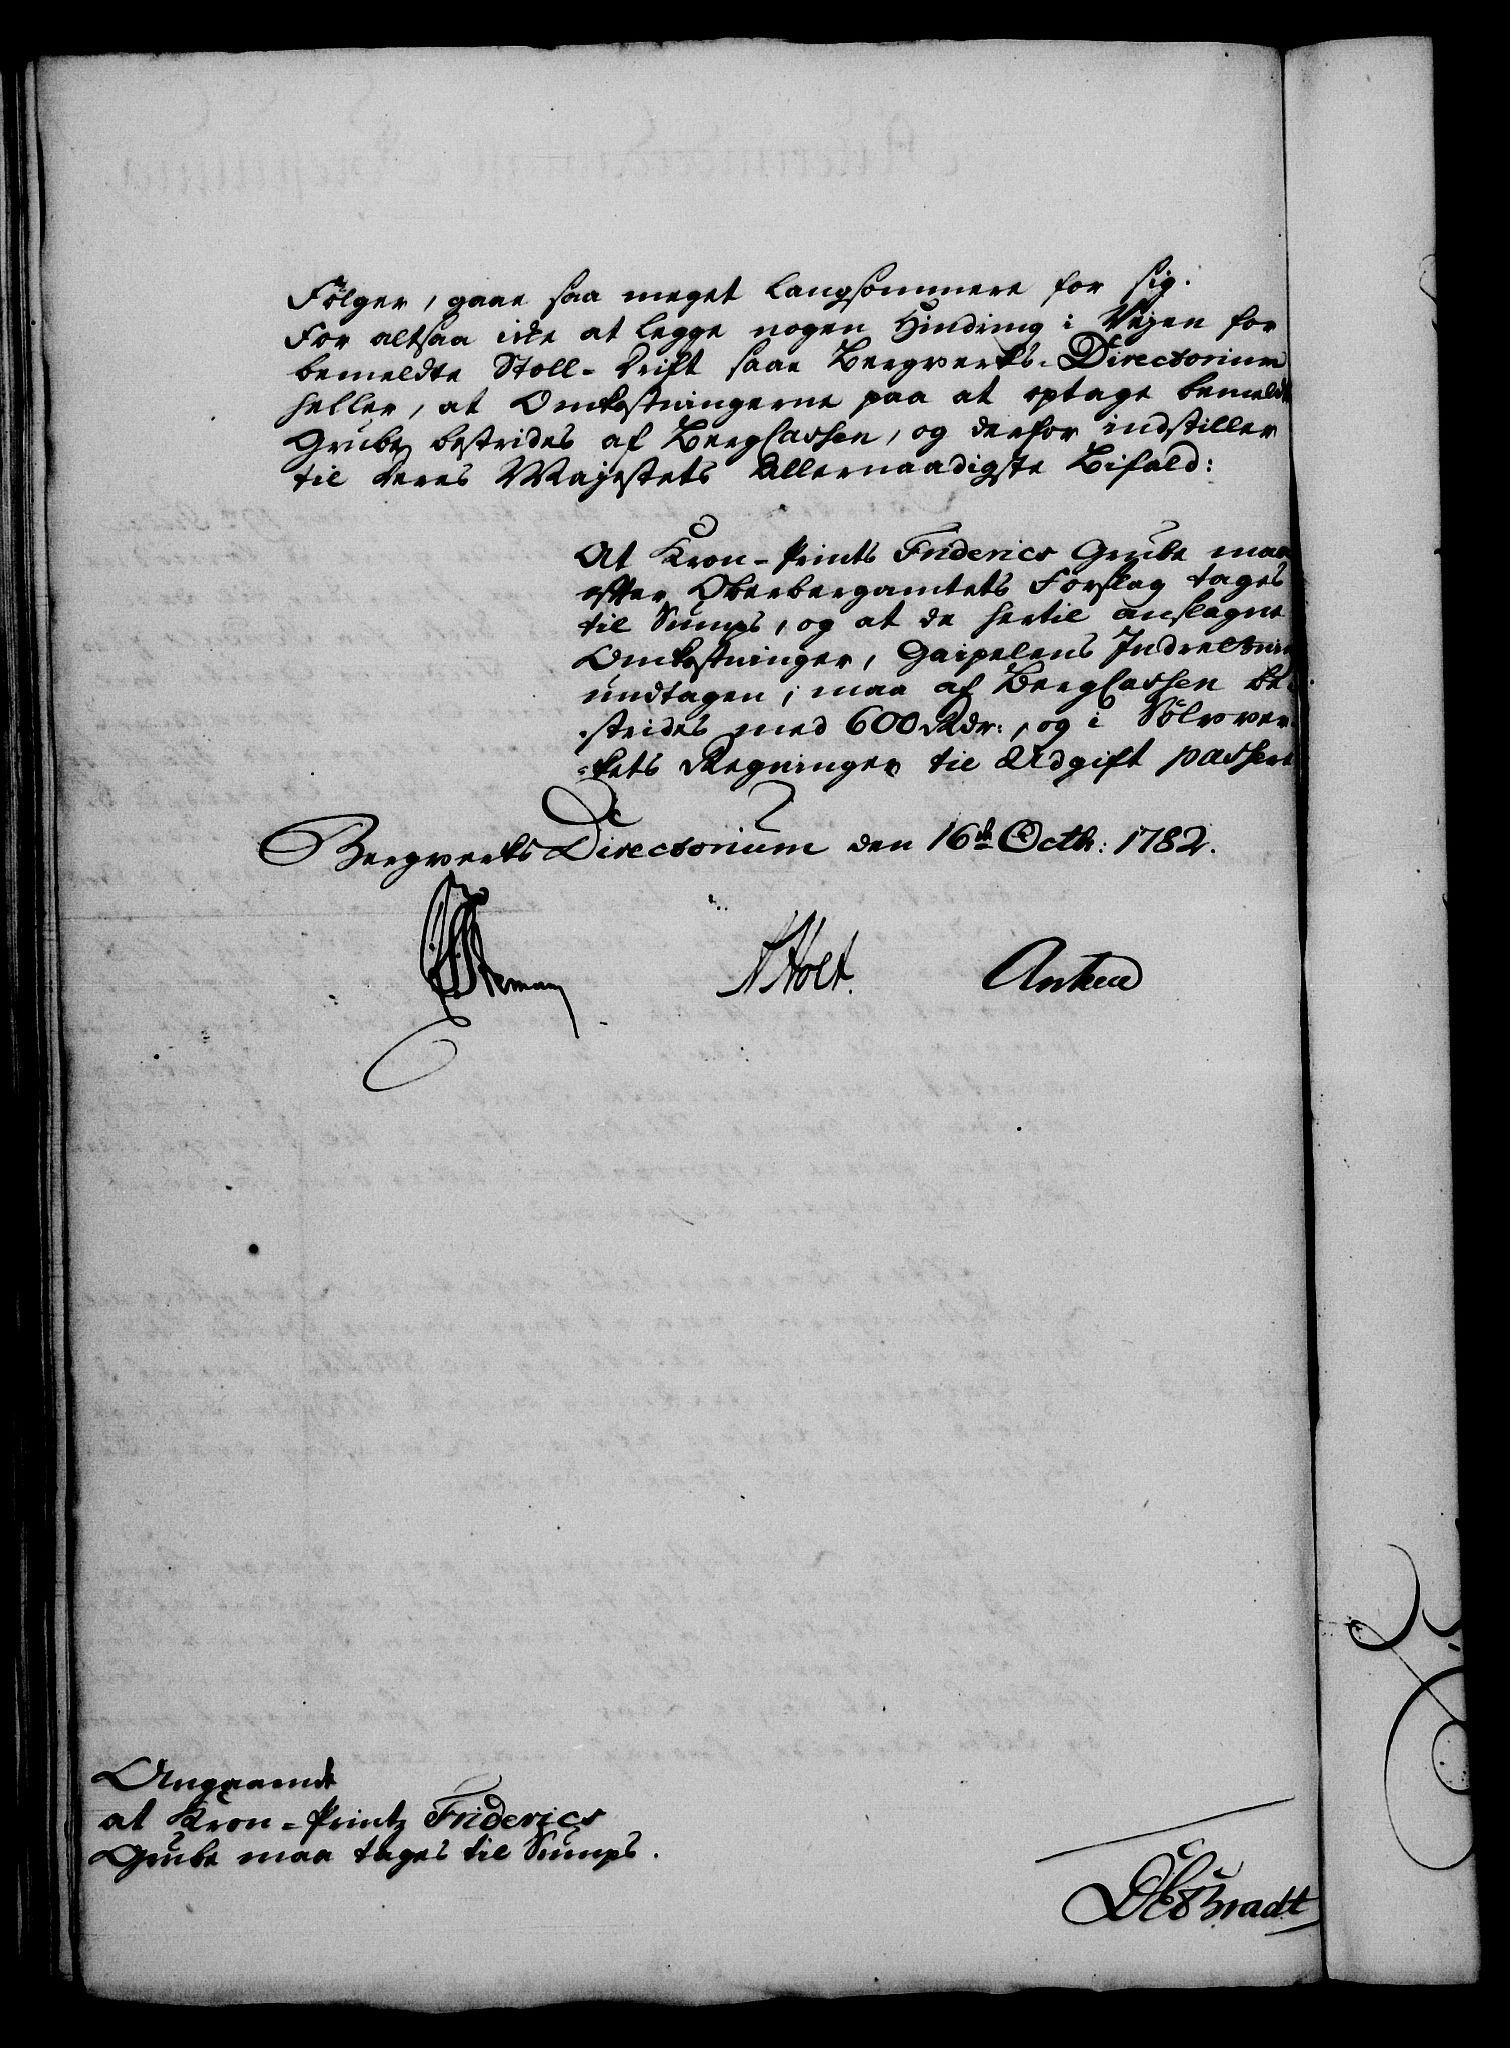 Fölger, gaae saa meget langsommere for sig.
For altsaa ikke at legge nogen Hindring i Vejen for
bemeldte Stoll-Drift saae Bergverks-Directorium
heller, at Omkostningerne paa at optage bemeldte
Grube bestrides af BergCassen, og derfor indstiller
til Deres Majestets Allernaadigste Bifald:
At Kron-Prints Friderics Grube maa
efter Oberbergamtets Forslag tages
til Sumps, og at de hertil anslagne
Omkostninger, Gaipelens Indretning
undtagen, maa af BergCassen be-
strides med 600 Rdr:, og i Sölvver-
=kets Regninger til Udgift passere
Bergverks Directorium den 16de Octbr: 1782.
Stemann
Holt.
Anker
Angaaende
at Kron-Printz Friderics
Grube maa tages til Sumps.
Bradt